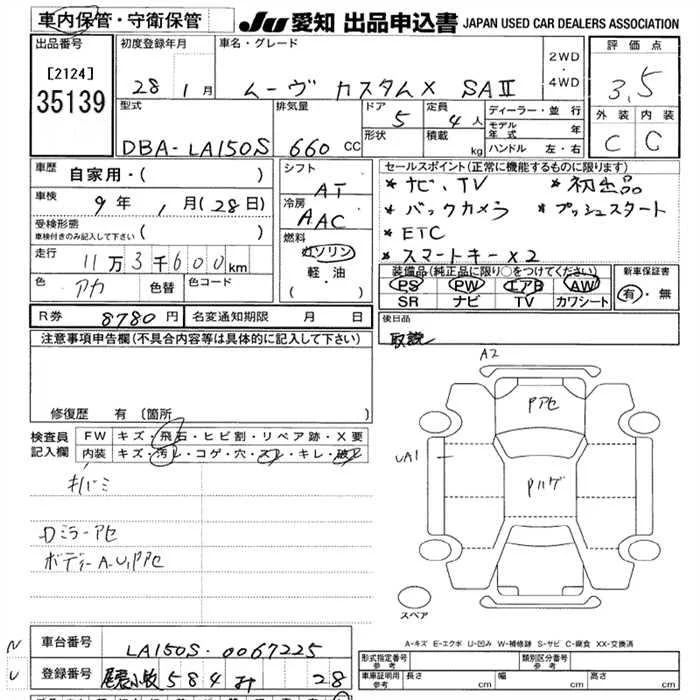 車内保管・守衛保管
JU 愛知 出品申込書 JAPAN USED CAR DEALERS ASSOCIATION
出品番号
[2124]
35139
初度登録年月
28 1月
車名・グレード
ムーヴ カスタムX SAⅡ
2WD
・
4WD
評価点
3.5
外装 内装
C C
型式
DBA-LA150S
排気量
660 CC
ドア
5
形状
定員
4人
積載 kg
ディーラー・並行
モデル年式 年
ハンドル 左・右
車歴 自家用・( )
車検 9年 1月(28日)
受検形態
車検付きのみ記入して下さい ( )
走行 11万3千600km
色 アカ 色替 色コード
シフト
AT
冷房
AAC
燃料
ガソリン
軽・油
( ・ )
セールスポイント(正常に機能するものに限ります)
* ナビ、TV * 初出品
* バックカメラ * プッシュスタート
* ETC
* スマートキー×2
装備品(純正品に限り○をつけてください)
PS PW エアB AW
SR ナビ TV カワシート
新車保証書
有・無
R券 8780円 名変通知期限 月 日
後日品
取説
注意事項申告欄(不具合内容等は具体的に記入して下さい)
修復歴 有 〔箇所 〕
検査員記入欄
FW キズ・飛石・ヒビ割・リペア跡・X要
内装 キズ・汚レ・コゲ・穴・スレ・キレ・破レ
キバミ
Dミラーアセ
ボディーA-U,Pアセ
A2
Pアセ
UA1
Pハゲ
スペア
A-キズ E-エクボ U-凹み W-補修跡 S-サビ C-腐食 XX-交換済
N
U
車台番号 LA150S-0067225
登録番号 尾張小牧 584 28
形式指定番号
参考
類別区分番号
参考
車庫証明用
参考
長さ cm
幅 cm
高さ cm